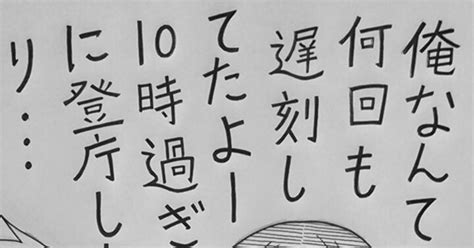 俺なんて
何回も
遅刻し
てたよー
10時過ぎ
に登庁し
り…